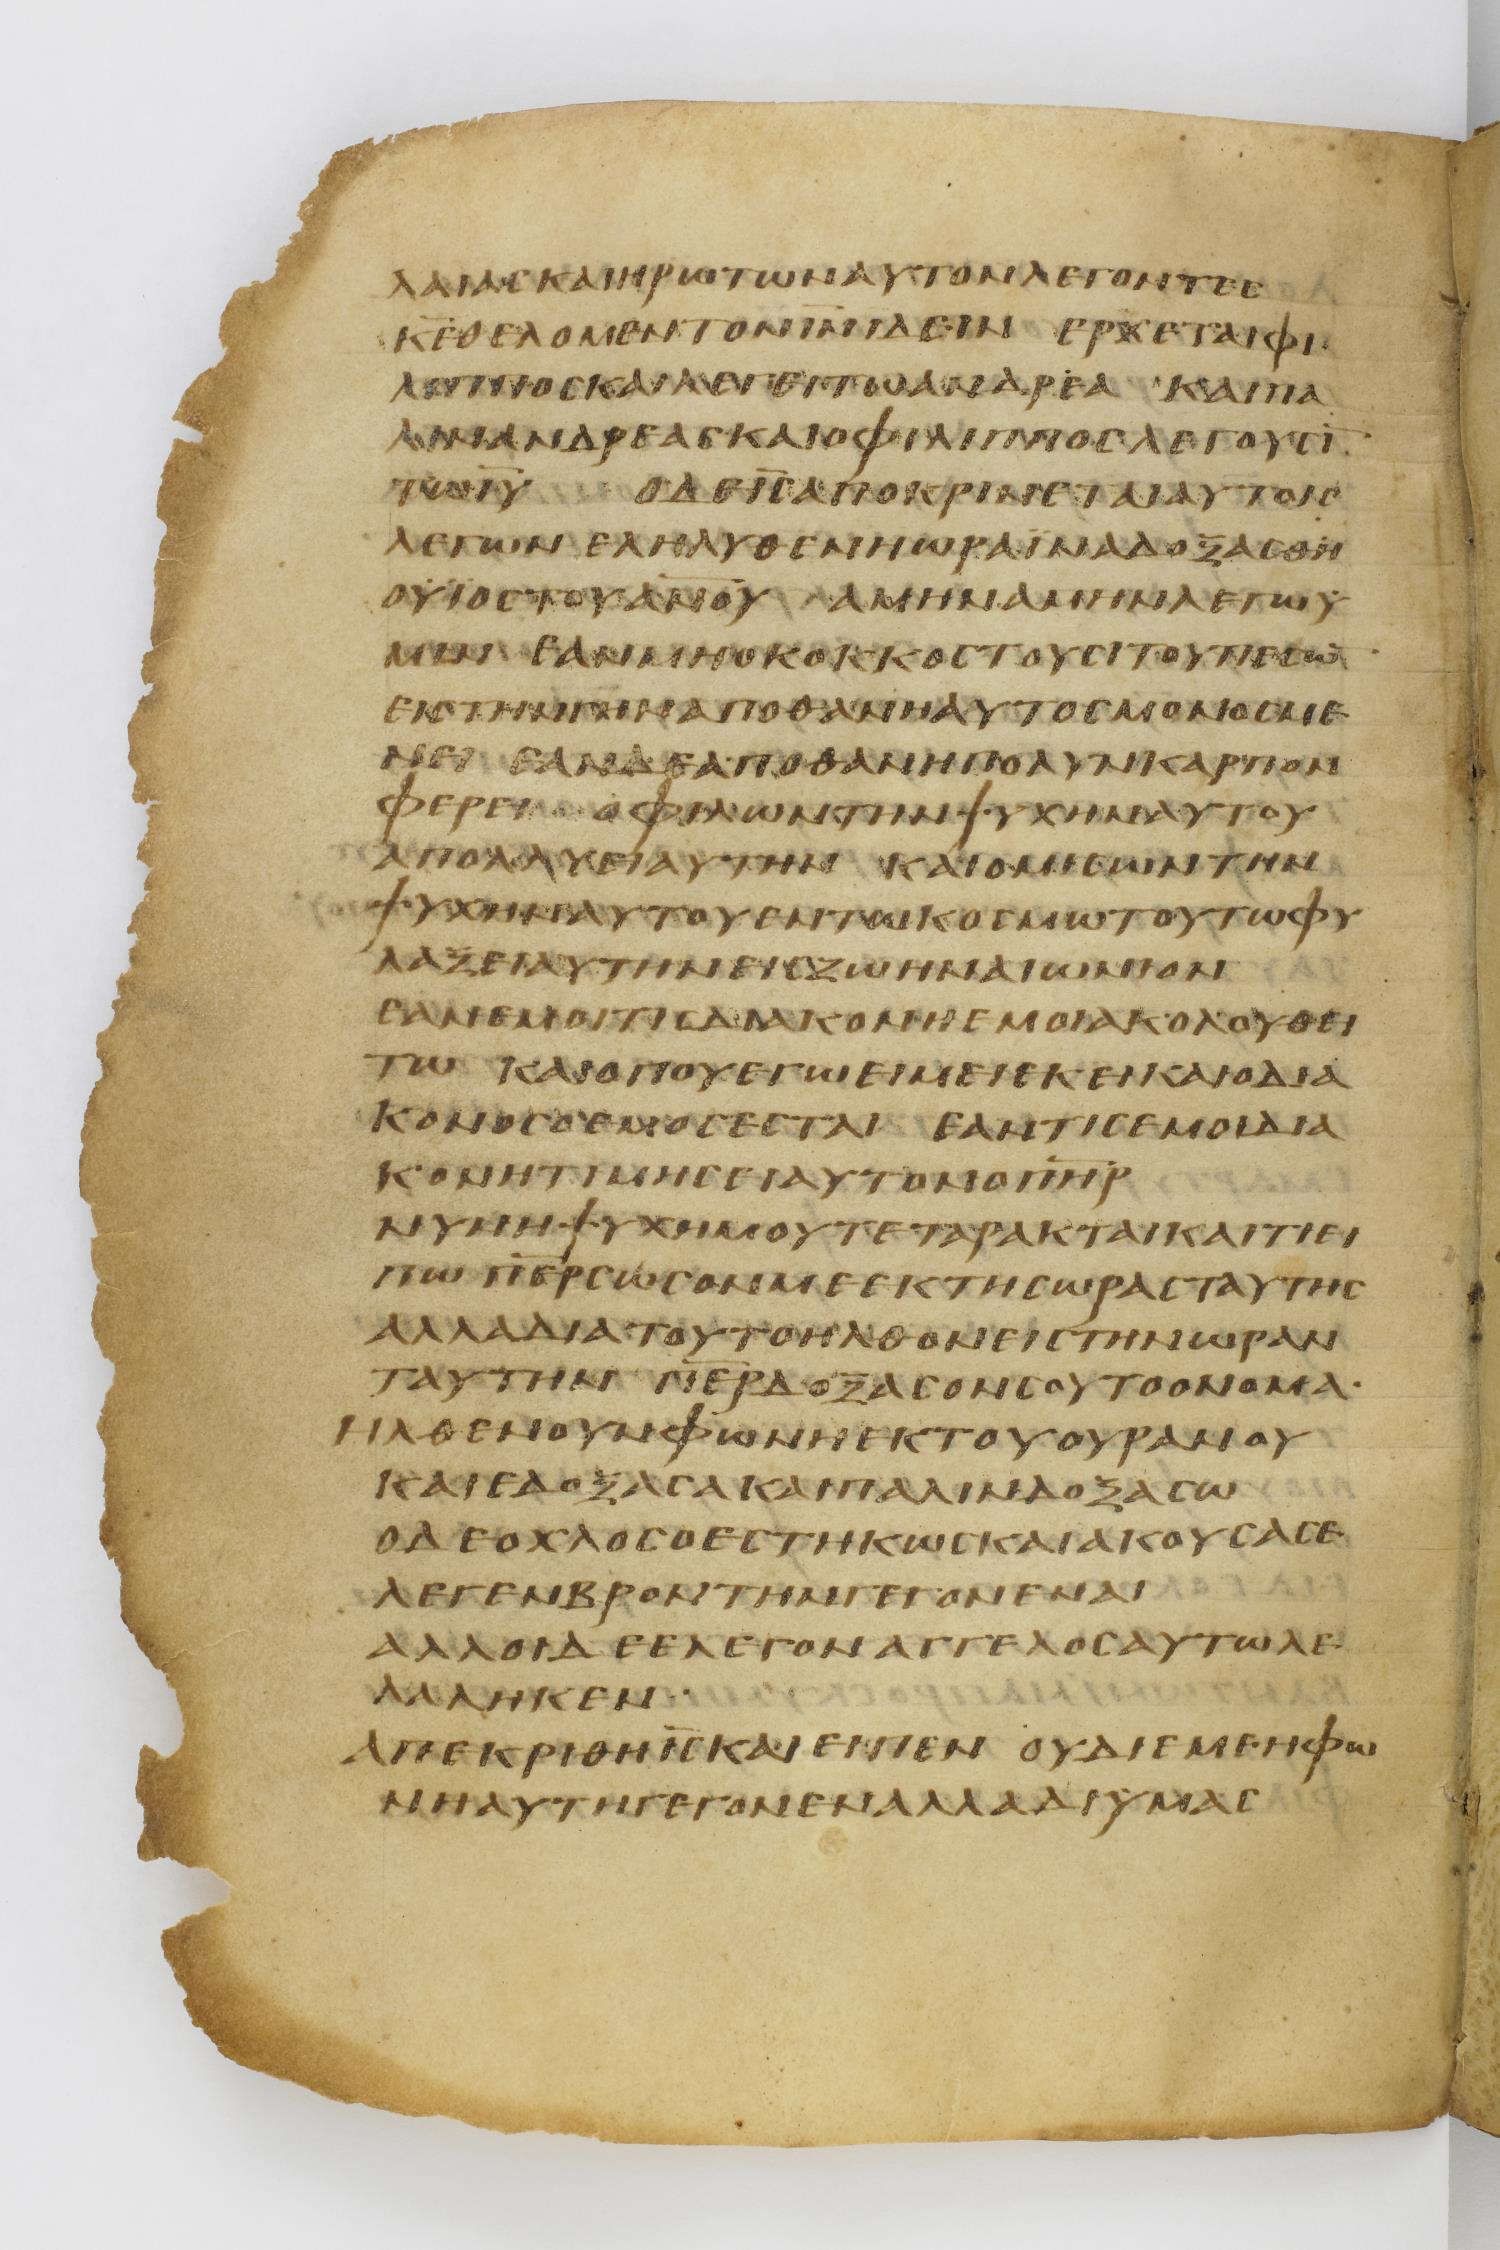 ΛΑΙΑϹΚΑΙΗΡΩΤΩΝΑΥΤΟΝΛΕΓΟΝΤΕϹ
Κ̅Ε̅ΘΕΛΟΜΕΝΤΟΝΙ̅Ν̅ΙΔΕΙΝ ΕΡΧΕΤΑΙΦΙ
ΛΙΠΠΟϹΚΑΙΛΕΓΕΙΤΩΑΝΔΡΕΑ ΚΑΙΠΑ
ΛΙΝΑΝΔΡΕΑϹΚΑΙΟΦΙΛΙΠΠΟϹΛΕΓΟΥϹΙ̅
ΤΩΙ̅Υ̅ ΟΔΕΙ̅Ϲ̅ΑΠΟΚΡΙΝΕΤΑΙΑΥΤΟΙϹ
ΛΕΓΩΝΕΛΗΛΥΘΕΝΗΩΡΑΪΝΑΔΟΞΑϹΘΗ
ΟΥΪΟϹΤΟΥΑ̅Ν̅Ο̅Υ̅ ΑΜΗΝΑΜΗΝΛΕΓΩΥ
ΜΙΝ ΕΑΝΜΗΟΚΟΚΚΟϹΤΟΥϹΙΤΟΥΠΕϹΩ̅
ΕΙϹΤΗΝΓΗΝΑΠΟΘΑΝΗΑΥΤΟϹΜΟΝΟϹΜΕ
ΝΕΙ ΕΑΝΔΕΑΠΟΘΑΝΗΠΟΛΥΝΚΑΡΠΟΝ
ΦΕΡΕΙ ΟΦΙΛΩΝΤΗΝΨΥΧΗΝΑΥΤΟΥ
ΑΠΟΛΛΥΕΙΑΥΤΗΝ ΚΑΙΟΜΙϹΩΝΤΗΝ
ΨΥΧΗΝΑΥΤΟΥΕΝΤΩΚΟϹΜΩΤΟΥΤΩΦΥ
ΛΑΞΕΙΑΥΤΗΝΕΙϹΖΩΗΝΑΙΩΝΙΟΝ
ΕΑΝΕΜΟΙΤΙϹΔΙΑΚΟΝΗΕΜΟΙΑΚΟΛΟΥΘΕΙ
ΤΩ ΚΑΙΟΠΟΥΕΓΩΕΙΜΕΙΕΚΕΙΚΑΙΟΔΙΑ
ΚΟΝΟϹΟΕΜΟϹΕϹΤΑΙ ΕΑΝΤΙϹΕΜΟΙΔΙΑ
ΚΟΝΗΤΙΜΗϹΕΙΑΥΤΟΝΟΠ̅Η̅Ρ̅
ΝΥΝΗΨΥΧΗΜΟΥΤΕΤΑΡΑΚΤΑΙΚΑΙΤΙΕΙ
ΠΩ Π̅Ε̅Ρ̅ϹΩϹΟΝΜΕΕΚΤΗϹΩΡΑϹΤΑΥΤΗϹ
ΑΛΛΑΔΙΑΤΟΥΤΟΗΛΘΟΝΕΙϹΤΗΝΩΡΑΝ
ΤΑΥΤΗΝ Π̅Ε̅Ρ̅ΔΟΞΑϹΟΝϹΟΥΤΟΟΝΟΜΑ·
ΗΛΘΕΝΟΥΝΦΩΝΗΕΚΤΟΥΟΥΡΑΝΟΥ
ΚΑΙΕΔΟΞΑϹΑΚΑΙΠΑΛΙΝΔΟΞΑϹΩ
ΟΔΕΟΧΛΟϹΟΕϹΤΗΚΩϹΚΑΙΑΚΟΥϹΑϹΕ
ΛΕΓΕΝΒΡΟΝΤΗΝΓΕΓΟΝΕΝΑΙ
ΑΛΛΟΙΔΕΕΛΕΓΟΝΑΓΓΕΛΟϹΑΥΤΩΛΕ
ΛΑΛΗΚΕΝ·
ΑΠΕΚΡΙΘΗΙ̅Ϲ̅ΚΑΙΕΙΠΕΝ ΟΥΔΙΕΜΕΗΦΩ
ΝΗΑΥΤΗΓΕΓΟΝΕΝΑΛΛΑΔΙΫΜΑϹ